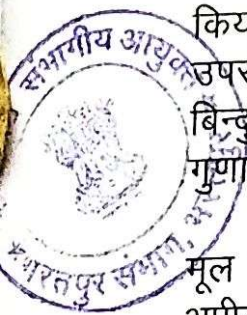 किय
उपर
बिन्दु
गुणा
मूल
संभागीय आयुक्त
भरतपुर संभाग,